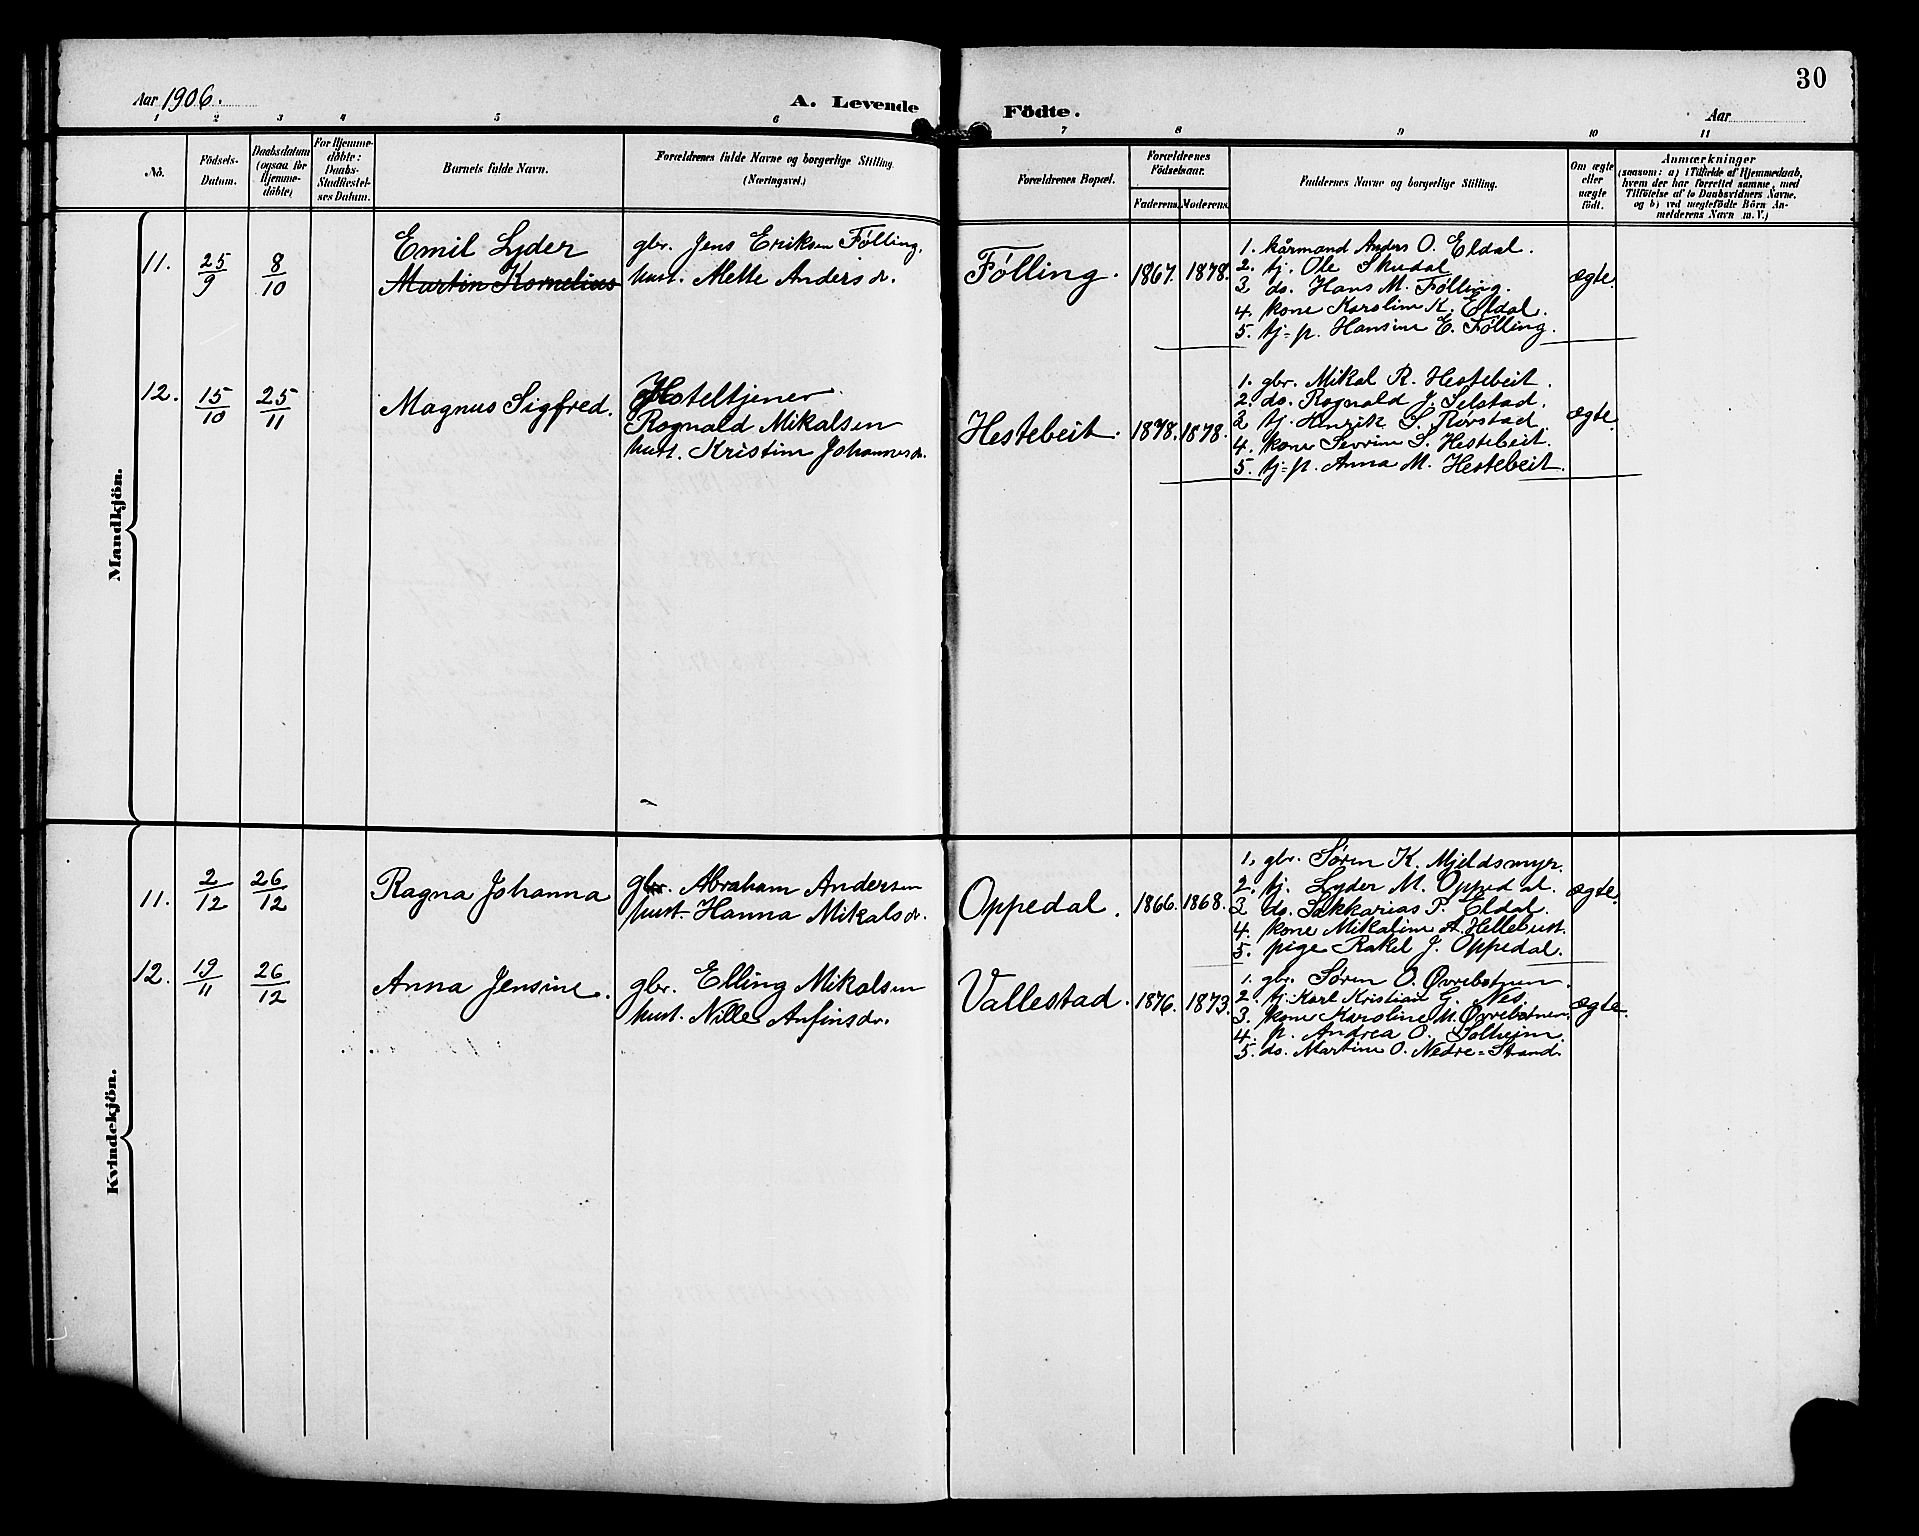 Aar 1906.
A. Levende Födte.
Aar
30
1 2 3 4 5 6 7 8 9 10 11
No.
Födsels-
Datum.
Daabsdatum
(ogsaa for
Hjemme-
döbte)
For Hjemme-
döbte:
Daabs-
Stadfæstel-
ses Datum.
Barnets fulde Navn.
Forældrenes fulde Navne og borgerlige Stilling.
(Næringsvei.)
Forældrenes Bopæl.
Forældrenes
Födselsaar.
Faderens. Moderens.
Faddernes Navne og borgerlige Stilling.
Om ægte
eller
uægte
födt.
Anmærkninger
(saasom: a) i Tilfælde af Hjemmedaab,
hvem der har forrettet samme, med
Tilföielse af to Daabsvidners Navne,
og b) ved uægtefödte Börn An-
melderens Navn m. V.)
Mandkjön.
11. 25/9 8/10
Emil Lyder
Martin Kornelius
gbr. Jens Eriksen Følling.
hust. Mette Andersdr.
Følling. 1867. 1878.
1. kårmand Anders O. Eldal.
2. tj. Ole Skudal
3 do. Hans M. Følling.
4. kone Karoline K. Eldal.
5. tj=p. Hansine E. Følling.
ægte.
12. 15/10 25/11
Magnus Sigfred.
Hoteltjener
Rognald Mikalsen
hust. Kristine Johannesdr.
Hestebeit. 1878. 1878.
1. gbr. Mikal R. Hestebeit.
2. do. Rognald J. Selstad.
3 tj. Henrik S. Rørstad
4. kone Sevrine S. Hestebeit.
5. tj=p. Anna M. Hestebeit.
ægte.
Kvindekjön.
11. 2/12 26/12
Ragna Johanna
gbr. Abraham Andersen
hust. Hanna Mikalsdr.
Oppedal. 1866. 1868.
1. gbr. Søren K. Mjeldsmyr.
2. tj. Lyder M. Oppedal.
3 do. Sakkarias P. Eldal.
4. kone Mikaline A. Hellebust.
5. pige Rakel J. Oppedal.
ægte.
12. 19/11 26/12
Anna Jensine.
gbr. Elling Mikalsen
hust. Nille Anfinsdr.
Vallestad. 1876. 1873.
1. gbr. Søren O. Øvrebotnen.
2. tj. Karl Kristian G. Nes.
3. kone Karoline M. Øvrebotnen.
4. p. Andrea O. Solheim.
5. do. Martine O. Nedre=Strand.
ægte.